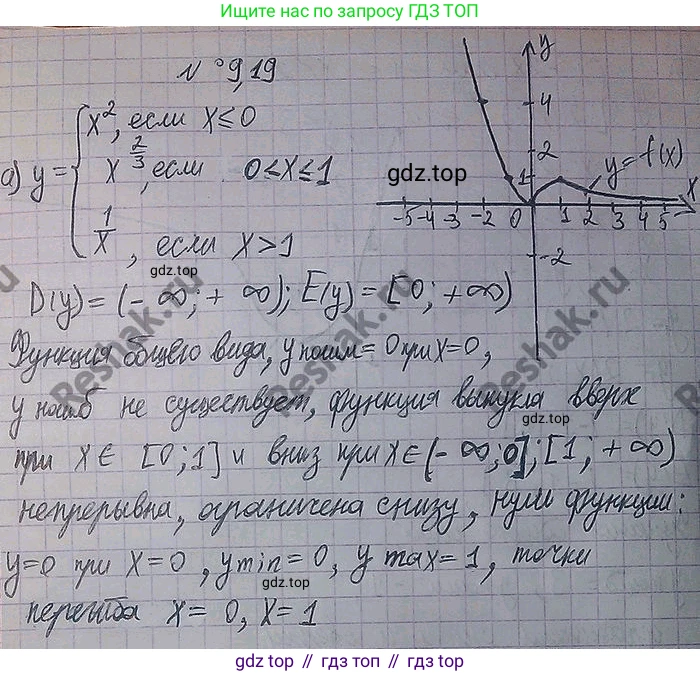 Ищите по запросу ГДЗ ТОП
N°9,19
а) y = { x², если x ≤ 0
x^{2/3}, если 0 < x ≤ 1
1/x, если x > 1
y
4
2
1
-5 -4 -3 -2 0 1 2 3 4 5 x
-2
y=f(x)
gdz.top
gdz.top
D(y) = (-∞; +∞); E(y) = [0; +∞)
Функция общего вида, y наим = 0 при x=0,
y наиб не существует, функция выпукла вверх
gdz.top
при x ∈ [0;1] и вниз при x ∈ (-∞;0]; [1; +∞)
непрерывна, ограничена снизу, нули функции:
y=0 при x=0, y min=0, y max=1, точки
gdz.top
перегиба x=0, x=1
gdz.top
Reshak.ru
Reshak.ru
Reshak.ru
gdz top // гдз топ // гдз.top